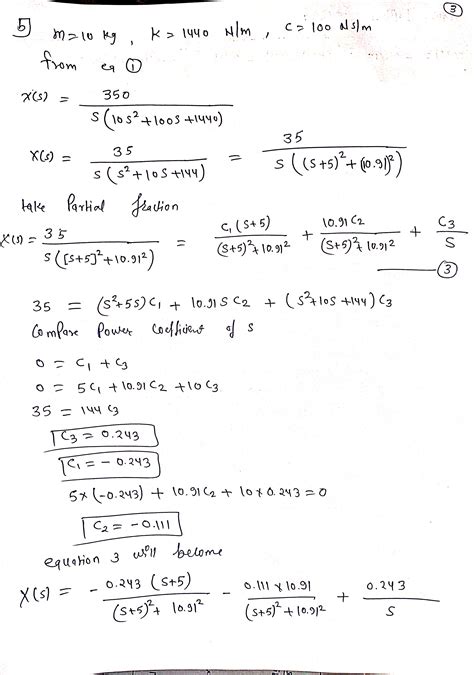 3
5] m=10 kg, K= 1440 N/m, C= 100 Ns/m
from eq ①
X(s) = 350 / S(10S²+100S+1440)
X(s) = 35 / S(S²+10S+144) = 35 / S((S+5)²+(10.91)²)
take Partial fraction
X(s) = 35 / S([S+5]²+10.91²) = C₁(S+5) / (S+5)²+10.91² + 10.91C₂ / (S+5)²+10.91² + C₃ / S
③
35 = (S²+5S)C₁ + 10.91SC₂ + (S²+10S+144)C₃
Compare Power Coefficient of S
0 = C₁+C₃
0 = 5C₁+10.91C₂+10C₃
35 = 144C₃
C₃ = 0.243
C₁ = -0.243
5×(-0.243) + 10.91C₂ + 10×0.243 = 0
C₂ = -0.111
equation 3 will become
X(s) = - 0.243(S+5) / (S+5)²+10.91² - 0.111×10.91 / (S+5)²+10.91² + 0.243 / S